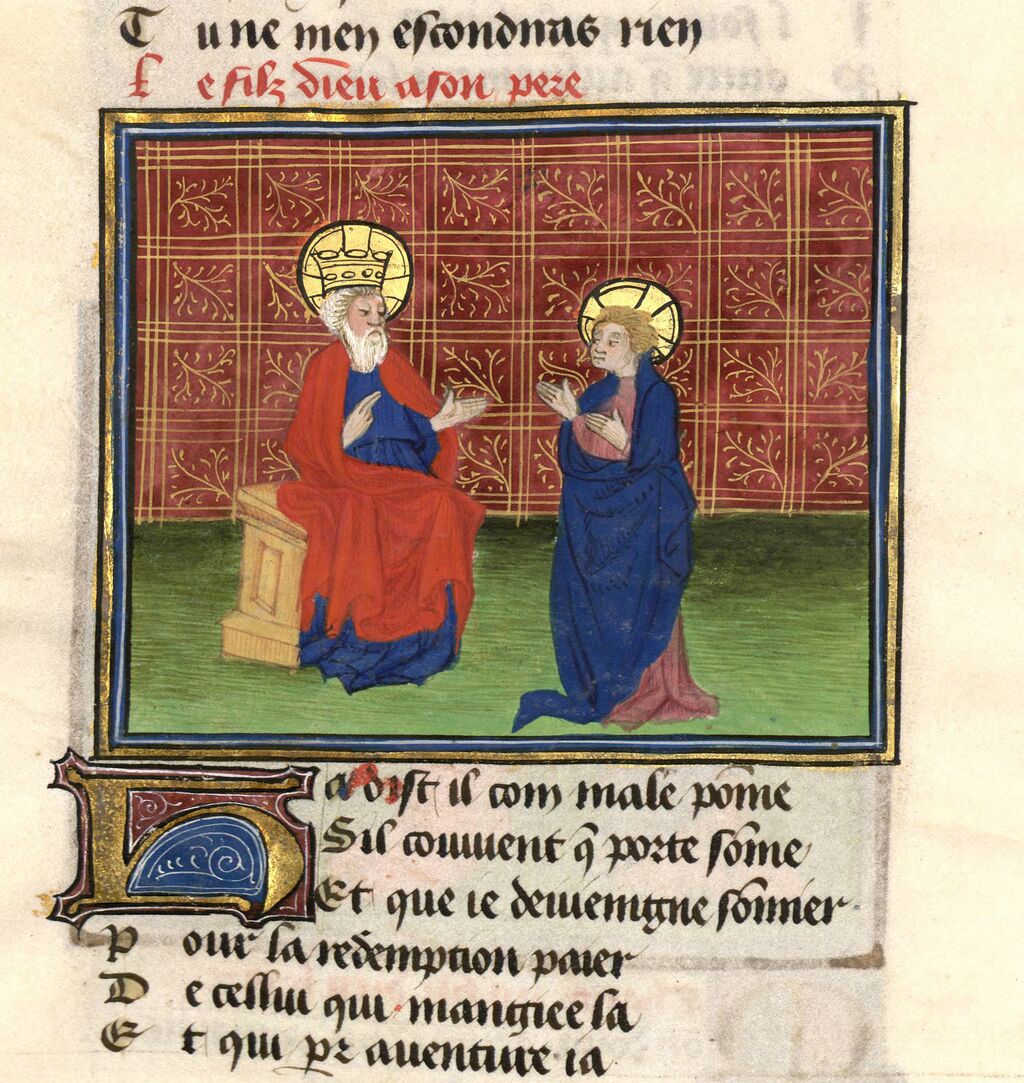 Tu ne men escondiras rien
Le filz dieu a son pere
Ha dist il com male pōme
Sil couvient q̄ porte sōme
Et que ie deviengne sōmier
Pour la redempcion paier
De cellui qui mangiee la
Et qui p̄ aventure ia